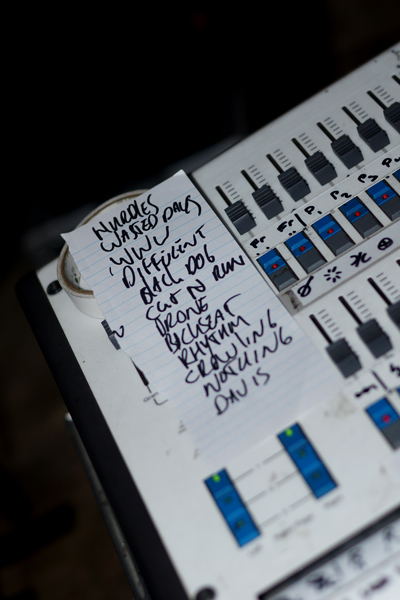 HURDLES
WASTED DAYS
WWW
DIFFERENT
BALL DOG
CUT N RUN
DRONE
BACKSEAT
RHYTHM
CRAWLING
NOTHING
DAVIS
P1 P2 P3